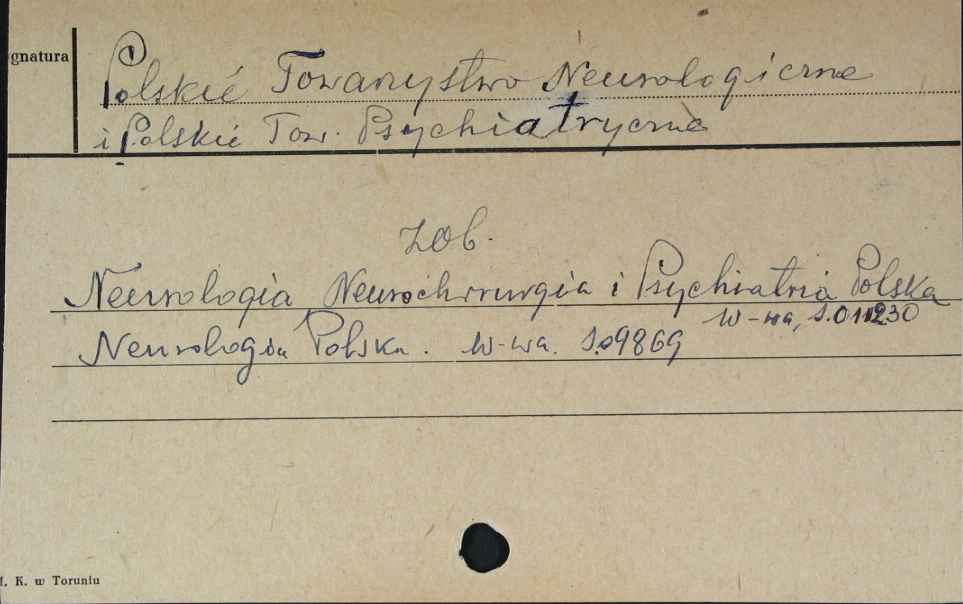 gnatura
Polskie Towarzystwo Neurologiczne
i Polskie Tow. Psychiatryczne
zob.
Neurologia Neurochirurgia i Psychiatria Polska
W-wa, S.011230
Neurologia Polska. W-wa. S.09869
K. w Toruniu